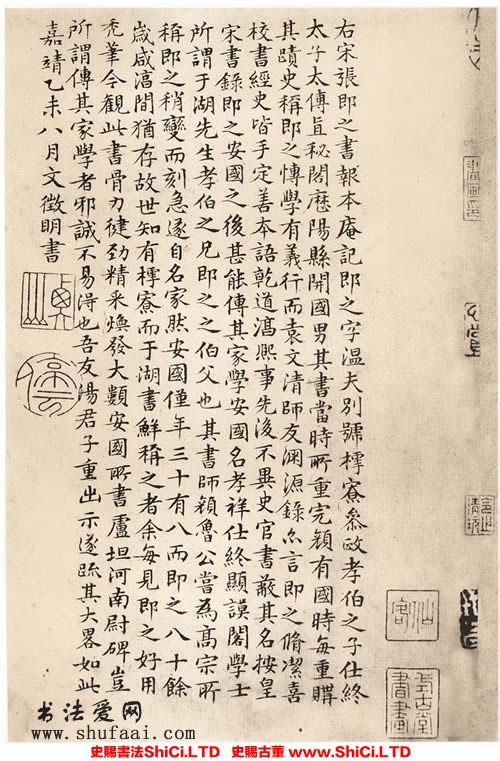 右宋張即之書報本庵記即之字溫夫別號樗寮參政孝伯之子仕終
太子太傅直秘閣歷陽縣開國男其書當時所重完顏有國時每重購
其蹟史稱即之博學有義行而袁文清師友淵源錄亦言即之脩潔喜
校書經史皆手定善本語乾道淳熙事先後不異史官書蓺其名按皇
宋書錄即之安國之後甚能傳其家學安國名孝祥仕終顯謨閣學士
所謂于湖先生孝伯之兄即之之伯父也其書師顏魯公嘗為高宗所
稱即之稍變而刻急遂自名家然安國僅年三十有八而即之八十餘
歲咸淳間猶存故世知有樗寮而于湖書鮮稱之者余每見即之好用
禿筆今觀此書骨力健勁精采煥發大類安國所書盧坦河南尉碑豈
所謂傳其家學者邪誠不易得也吾友湯君子重出示遂疏其大畧如此
嘉靖乙未八月文徵明書
仙客
書畫
书法爱网
www.shufaai.com
史賜書法ShiCi.LTD 史賜古董 www.ShiCi.LTD